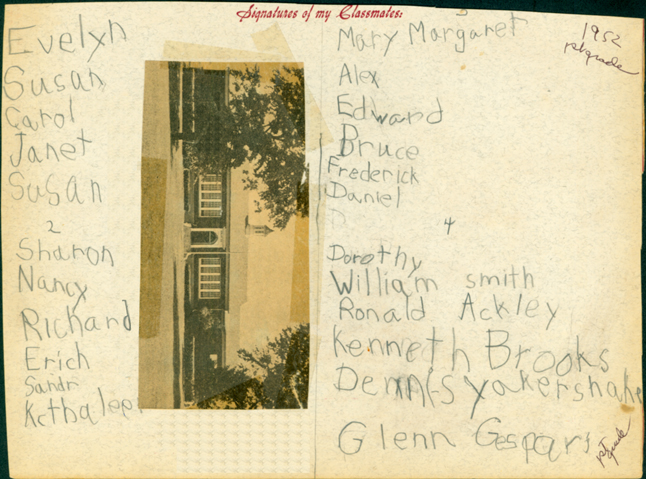 Signatures of my Classmates:
Evelyn
Susan
Carol
Janet
Susan
2
Sharon
Nancy
Richard
Erich
Sandr
Kathalee
Mary Margaret
Alex
Edward
Bruce
Frederick
Daniel
D
4
Dorothy
William smith
Ronald Ackley
Kenneth Brooks
Dennis
Glenn Gespars
1952
1st grade
1st grade